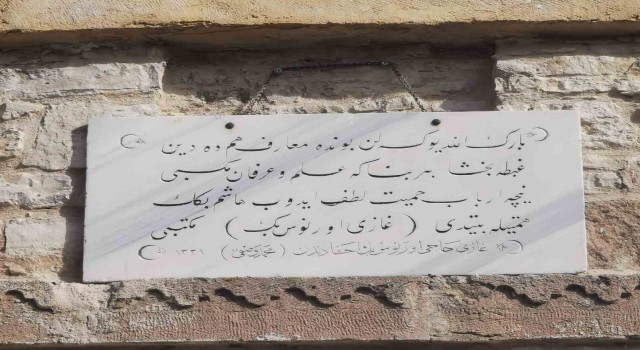 بارك الله يوكسلن بونده معارف هم ده دين
غبطه بخشا بر بناكه علم و عرفان مكسبى
نيجه ارباب حميت لطف ايدوب هاشم بكك
همتيله بيتدى ( غازى اورنوس بك ) مكتبى
غازى حاجى اورنوس بك احفادندن ( محمد رضى ) ١٣٣١